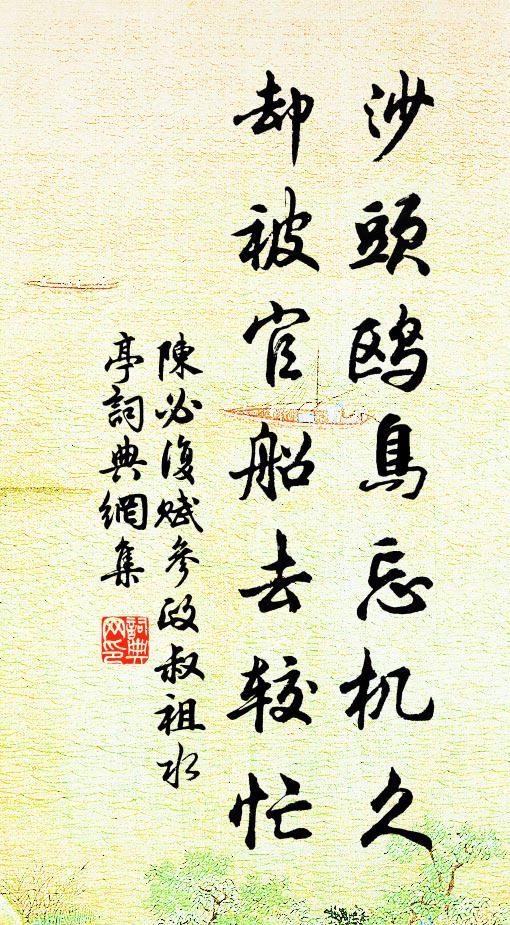 沙頭鸥鳥忘机久
却被官船去较忙
陳必復賦參政叔祖水
亭詞典網集
詞典
网印